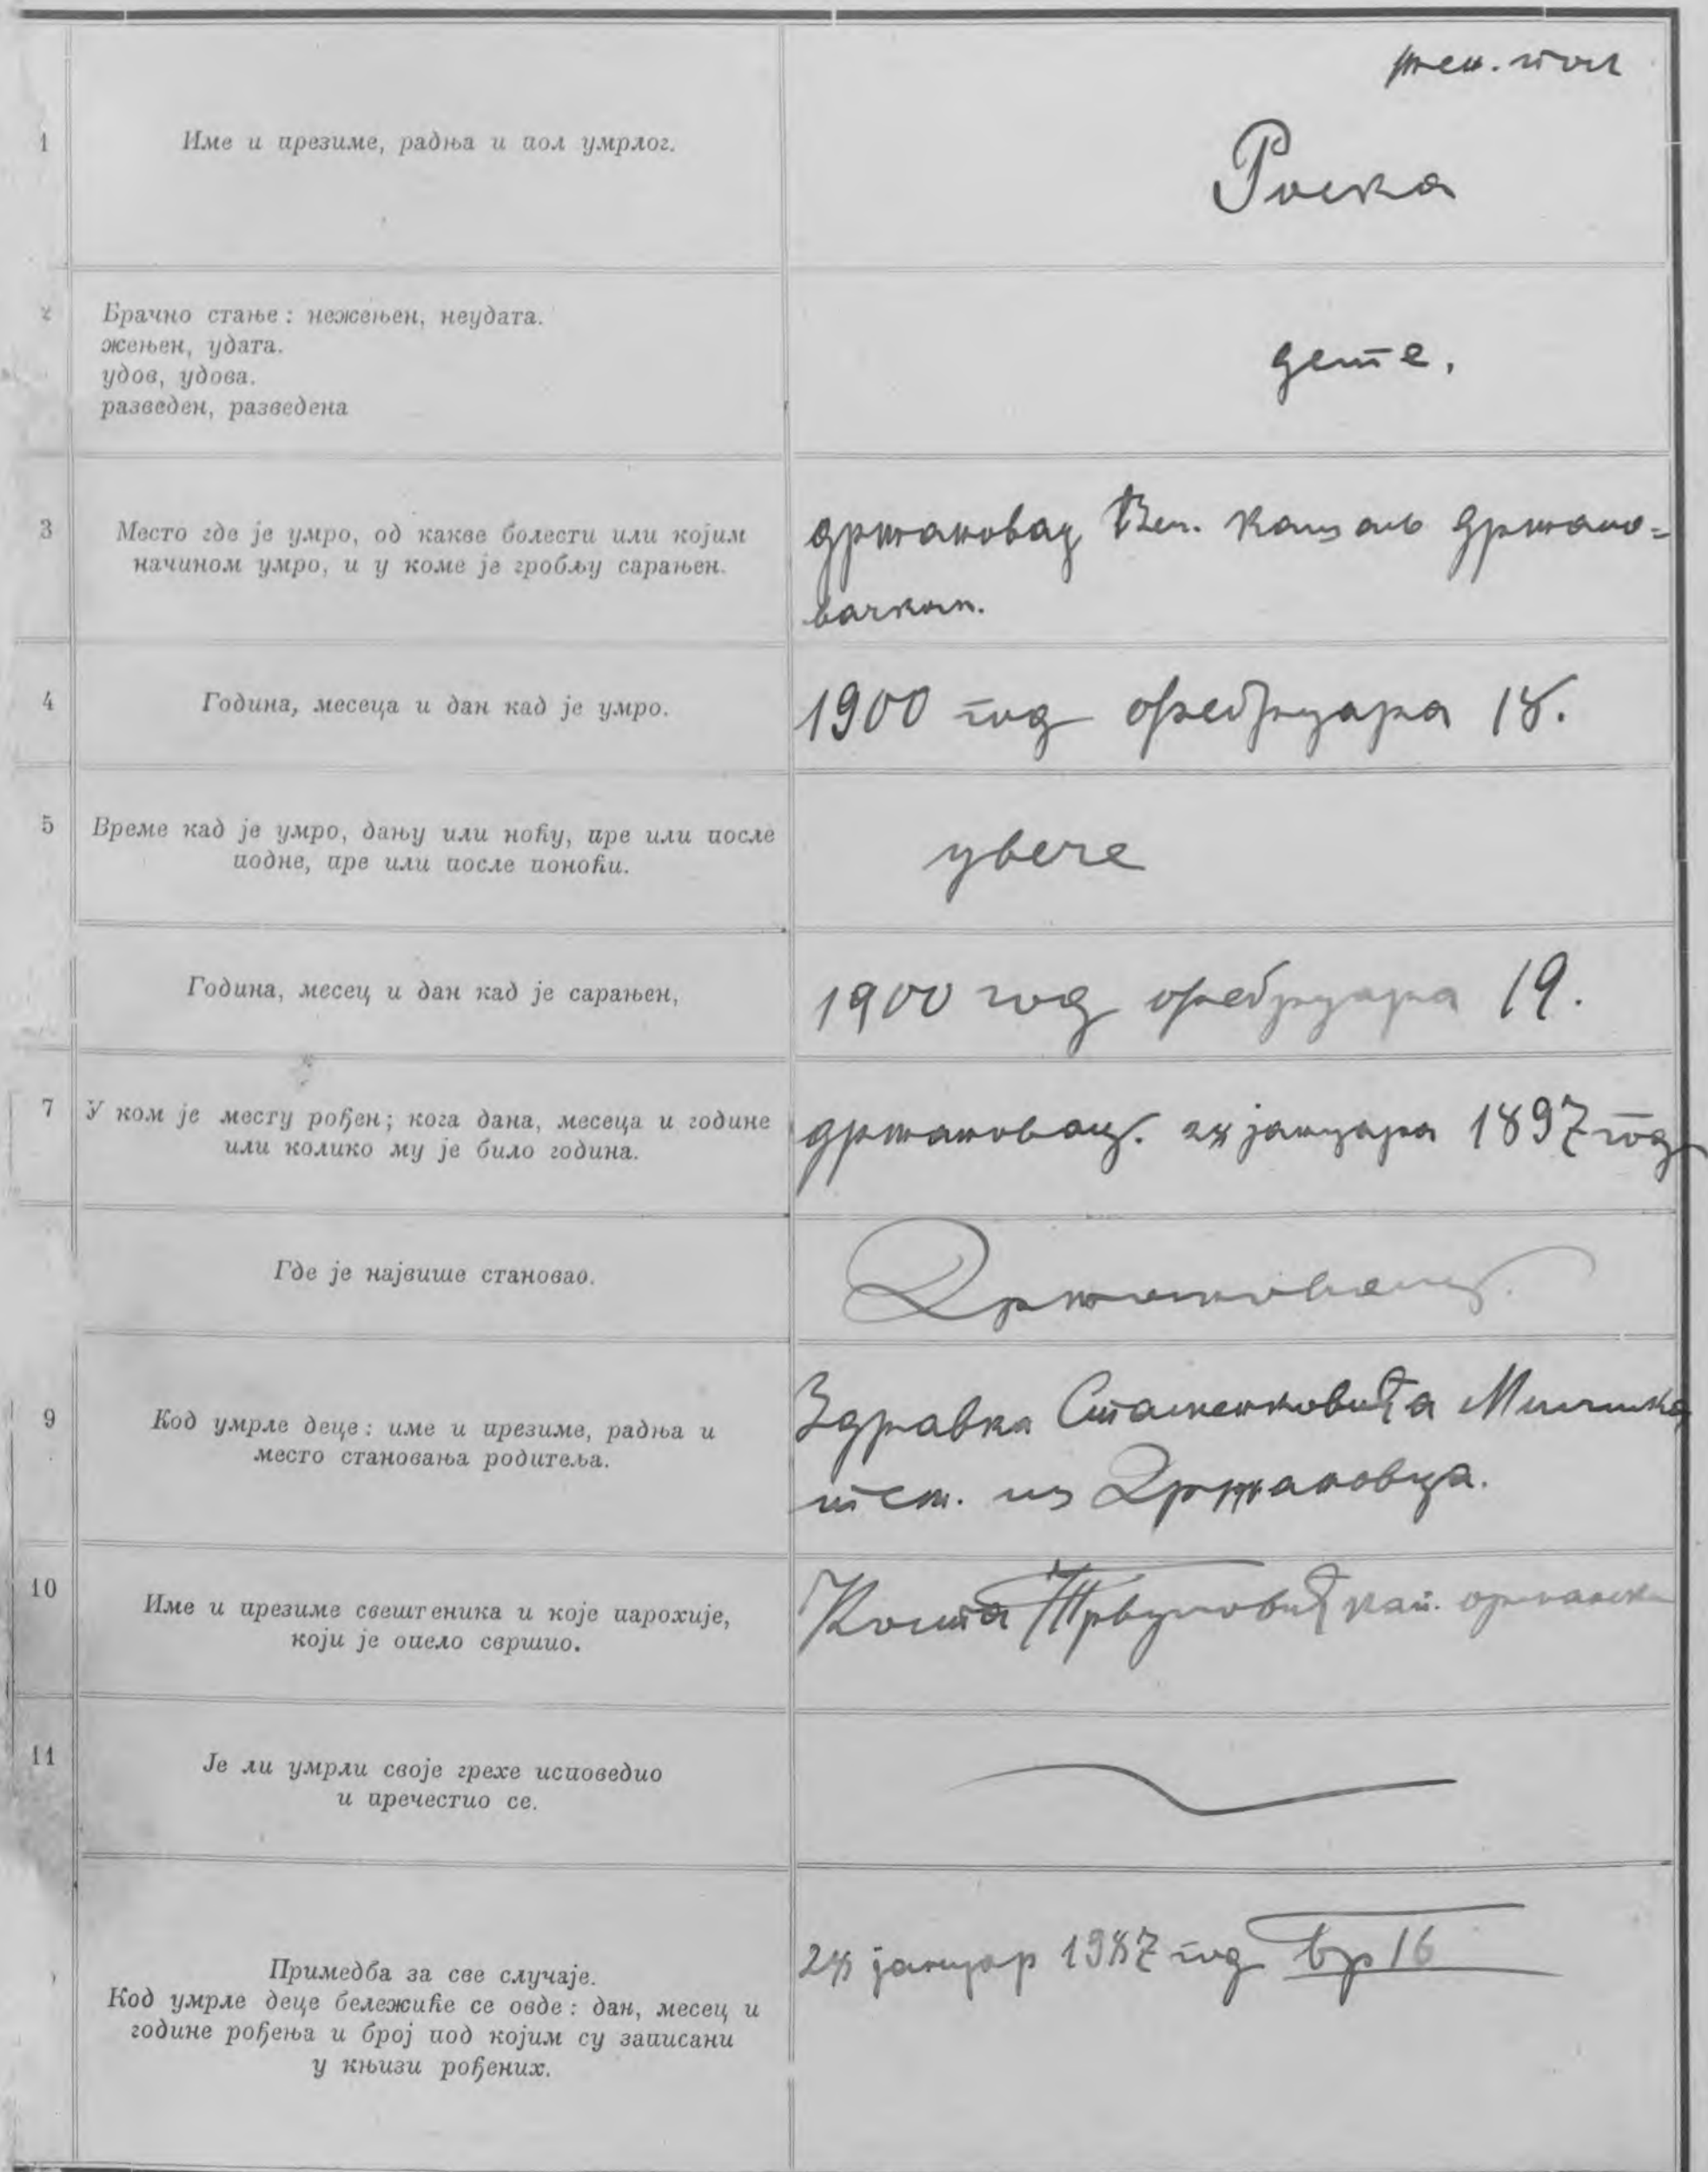 жен. пол
1
Име и презиме, радња и пол умрлог.
Роска
2
Брачно стање: нежењен, неудата.
жењен, удата.
удов, удова.
разведен, разведена
дете.
3
Место где је умро, од какве болести или којим
начином умро, и у коме је гробљу сарањен.
држановац Вел. кашаљ држано-
вачком.
4
Година, месеца и дан кад је умро.
1900 год фебруара 18.
5
Време кад је умро, дању или ноћу, пре или после
подне, пре или после поноћи.
увече
Година, месец и дан кад је сарањен,
1900 год фебруара 19.
7
У ком је месту рођен; кога дана, месеца и године
или колико му је било година.
држановац. јануара 1897 год
Где је највише становао.
Држановац.
9
Код умрле деце: име и презиме, радња и
место становања родитеља.
Здравка Стаменковића
из Држановца.
10
Име и презиме свештеника и које парохије,
који је опело свршио.
Коста
11
Је ли умрли своје грехе исповедио
и пречестио се.
Примедба за све случаје.
Код умрле деце бележиће се овде: дан, месец и
године рођења и број под којим су записани
у књизи рођених.
јануар год бр 16